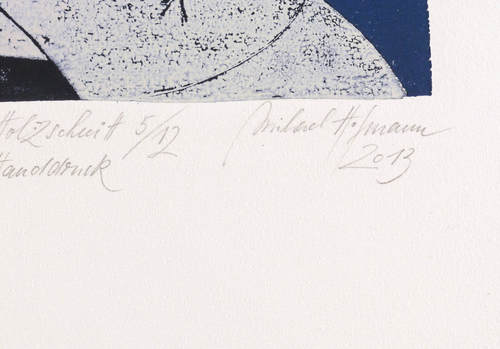 Holzschnitt 5/12 Michael Hofmann
Handdruck 2013